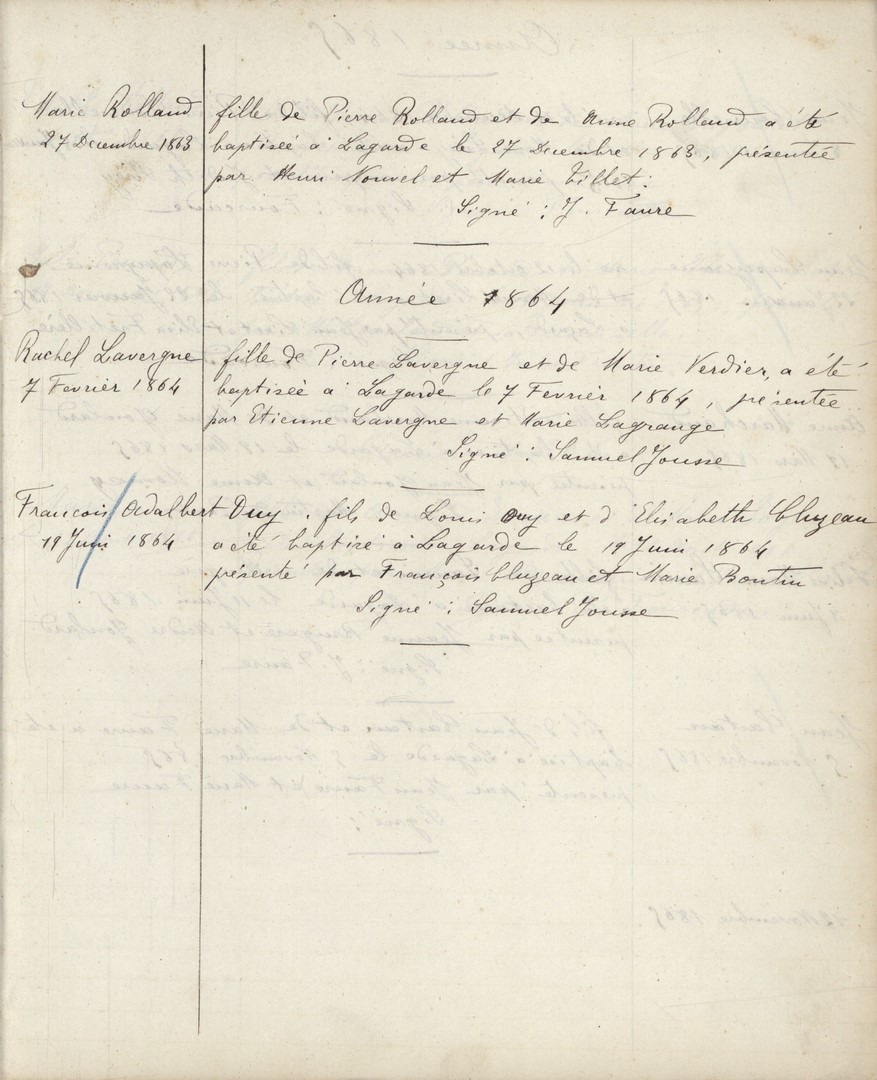 Marie Rolland
27 Decembre 1863
fille de Pierre Rolland et de Anne Rolland a été
baptisée à Lagarde le 27 Decembre 1863, présentée
par Henri Nouvel et Marie Tillet :
Signé : J. Faure
Année 1864
Rachel Lavergne
7 Fevrier 1864
fille de Pierre Lavergne et de Marie Verdier, a été
baptisée à Lagarde le 7 Fevrier 1864, présentée
par Etienne Lavergne et Marie Lagrange
Signé : Samuel Jousse
François Adalbert Duy. fils de Louis Duy et d Elisabeth Cluzeau
19 Juin 1864
a été baptisé à Lagarde le 19 Juin 1864
présenté par François Cluzeau et Marie Boutin
Signé : Samuel Jousse